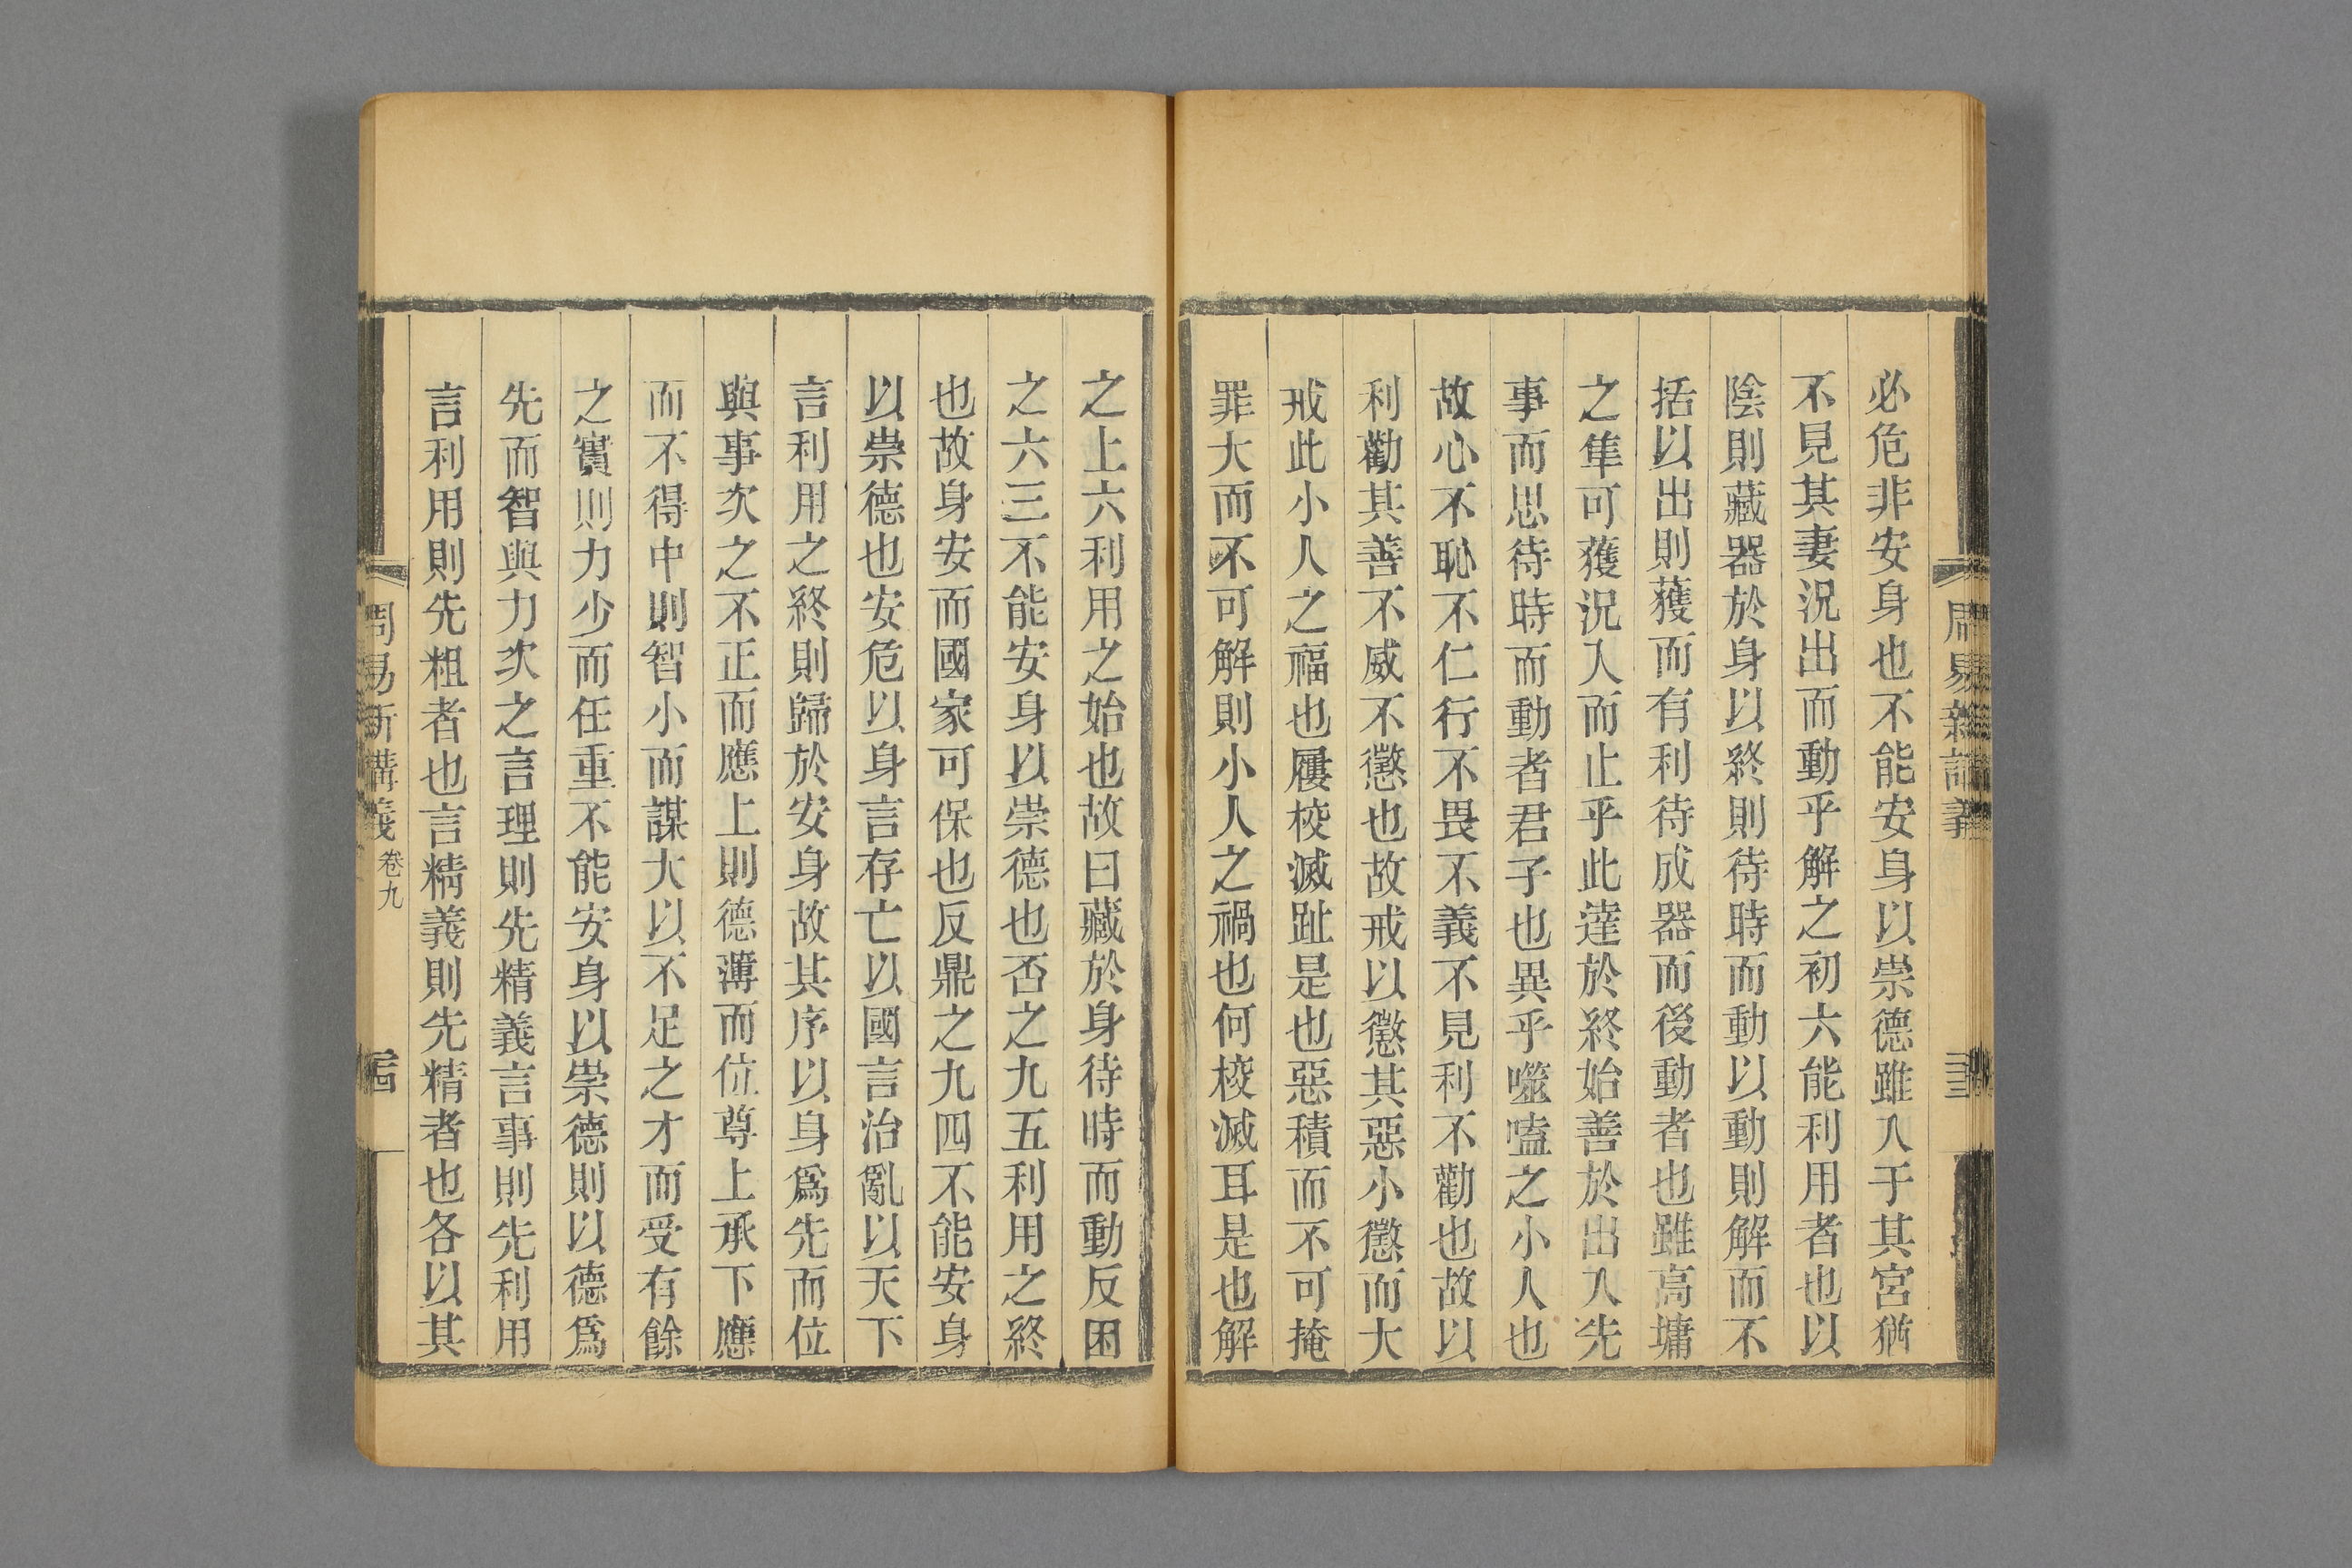 必危非安身也不能安身以崇德雖入于其宮猶
不見其妻況出而動乎解之初六能利用者也以
陰則藏器於身以終則待時而動以動則解而不
括以出則獲而有利待成器而後動者也雖高墉
之隼可獲況入而止乎此達於終始善於出入先
事而思待時而動者君子也異乎噬嗑之小人也
故心不恥不仁行不畏不義不見利不勸也故以
利勸其善不威不懲也故戒以懲其惡小懲而大
戒此小人之福也屨校滅趾是也惡積而不可掩
罪大而不可解則小人之禍也何校滅耳是也解
之上六利用之始也故曰藏於身待時而動反困
之六三不能安身以崇德也否之九五利用之終
也故身安而國家可保也反鼎之九四不能安身
以崇德也安危以身言存亡以國言治亂以天下
言利用之終則歸於安身故其序以身爲先而位
與事次之不正而應上則德薄而位尊上承下應
而不得中則智小而謀大以不足之才而受有餘
之實則力少而任重不能安身以崇德則以德爲
先而智與力次之言理則先精義言事則先利用
言利用則先粗者也言精義則先精者也各以其
周易新講義 卷九